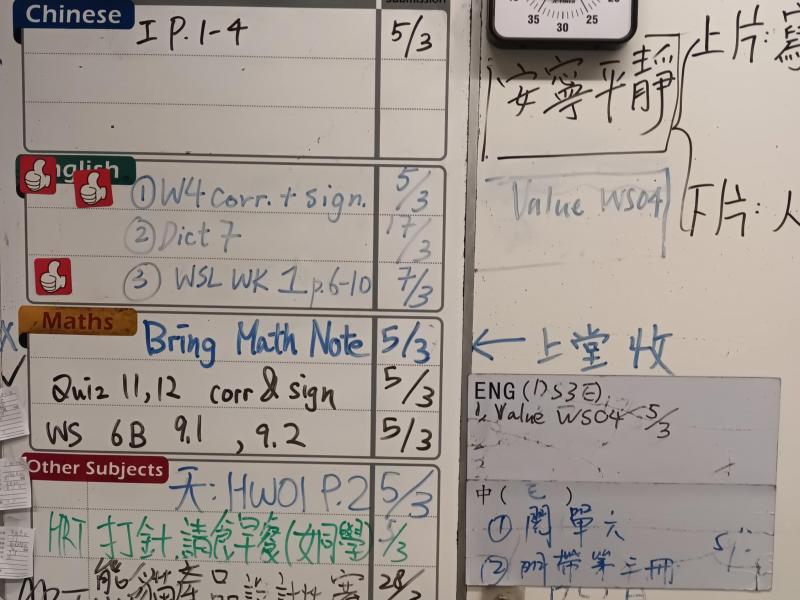 Chinese
I P.1-4 5/3
English
① W4 corr. + sign. 5/3
② Dict 7 17/3
③ WSL WK 1 p.6-10 7/3
Maths
Bring Math Note 5/3 ← 上堂收
Quiz 11,12 corr & sign 5/3
WS 6B 9.1 , 9.2 5/3
Other Subjects
天: HW01 P.2 5/3
HRT 打針,請食早餐(女同學) 5/3
產品設計
35 30 25
安寧平靜
上片:
下片: 人
Value WS04
ENG (1) S3E)
1. Value WS04 5/3
中( )
① 閱單六
② 帶第三冊